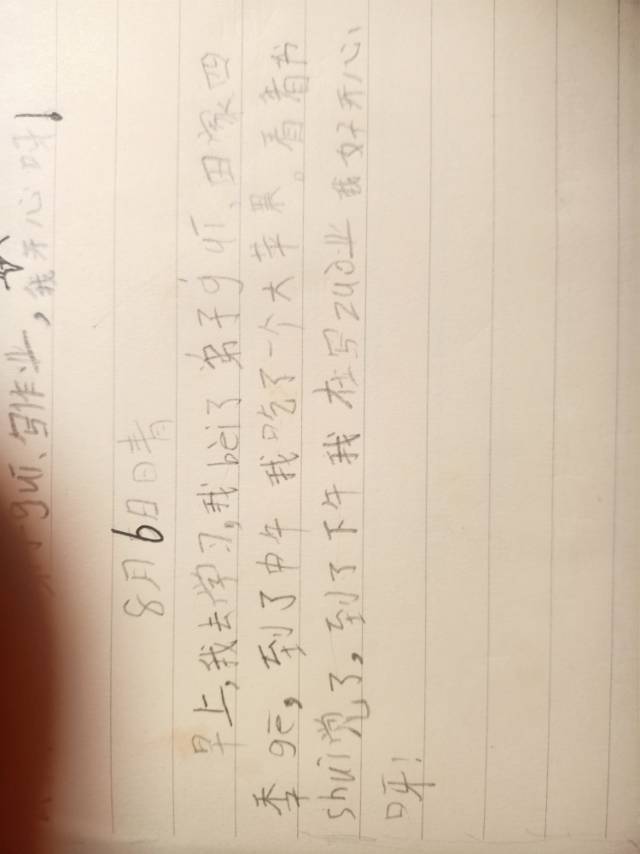 guī、写作业，我开心呀！
8月6日晴
早上，我去学习，我bèi了弟子guī、田家四
季gē，到了中午 我吃了一个大苹果。看着书
shuì觉了，到了下午我在写zuò业 我好开心
呀！